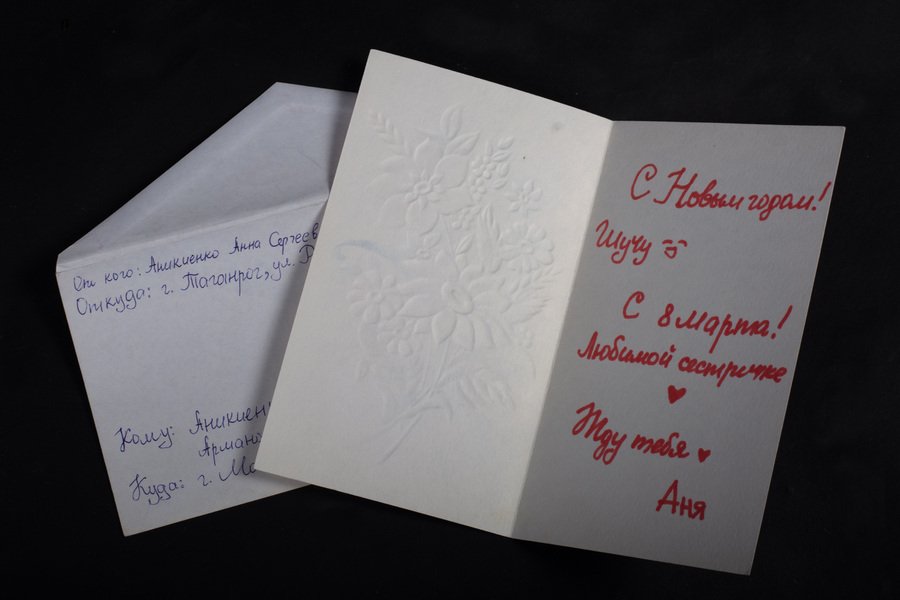 От кого: Аникиенко Анна Сергеев
Откуда: г. Таганрог, ул.
Кому: Аникиен
Армано
Куда: г. Мо
С Новым годом!
Шучу
С 8 марта!
Любимой сестричке
♥
Жду тебя ♥
Аня